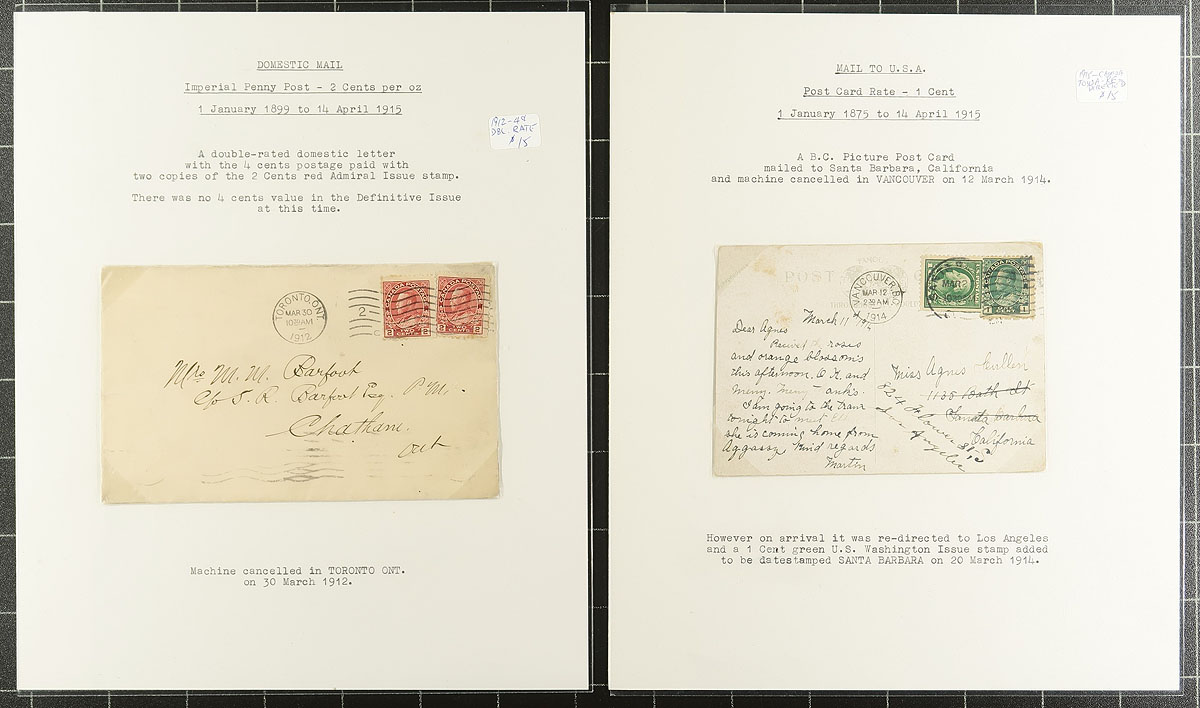 DOMESTIC MAIL
Imperial Penny Post - 2 Cents per oz
1 January 1899 to 14 April 1915
1912-4¢
DBL RATE
$15
A double-rated domestic letter
with the 4 cents postage paid with
two copies of the 2 Cents red Admiral Issue stamp.
There was no 4 cents value in the Definitive Issue
at this time.
TORONTO, ONT
MAR 30
1912
2
CANADA POSTAGE
2 CENTS 2
CANADA POSTAGE
2 CENTS 2
Mrs M. M. Barfoot
c/o S. R. Barfoot Esq. P.M.
Chatham.
Ont
Machine cancelled in TORONTO ONT.
on 30 March 1912.
MAIL TO U.S.A.
Post Card Rate - 1 Cent
1 January 1875 to 14 April 1915
$15
A B.C. Picture Post Card
mailed to Santa Barbara, California
and machine cancelled in VANCOUVER on 12 March 1914.
POST
VANCOUVER, B.C.
MAR 12
1914
CANADA POSTAGE
1 1
March 11 1914
Dear Agnes
roses
and orange blossoms
this afternoon. O.K. and
many, many
I am going to the tram
tonight to meet
she is coming home from
Aggassy Kind regards
Martin
Miss Agnes Cullen
1135 Bath St
Santa Barbara
California
824 Flower St
Los Angeles
However on arrival it was re-directed to Los Angeles
and a 1 Cent green U.S. Washington Issue stamp added
to be datestamped SANTA BARBARA on 20 March 1914.